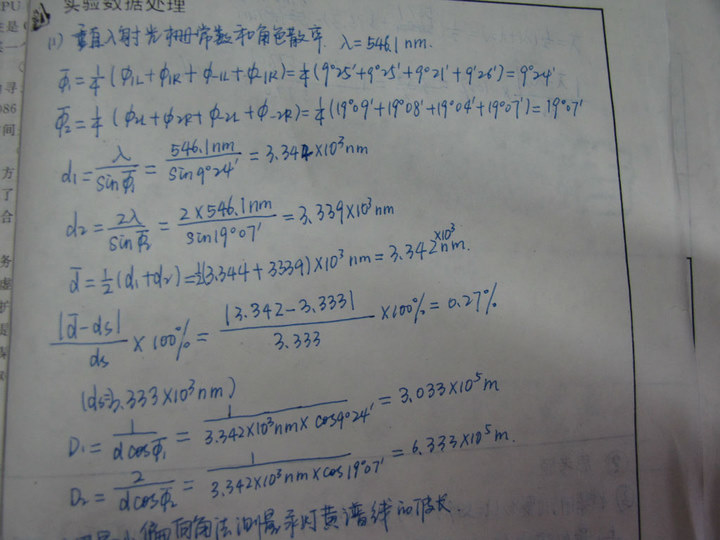 PU
实验数据处理
(1) 垂直入射光栅常数和角色散率. λ=546.1nm.
φ̄₁=¼(φ₁L+φ₁R+φ₋₁L+φ₋₁R)=¼(9°25′+9°25′+9°21′+9°26′)=9°24′
φ̄₂=¼(φ₂L+φ₂R+φ₋₂L+φ₋₂R)=¼(19°09′+19°08′+19°04′+19°07′)=19°07′
d₁=λ/sinφ̄₁=546.1nm/sin9°24′=3.344×10³nm
d₂=2λ/sinφ̄₂=2×546.1nm/sin19°07′=3.339×10³nm
d̄=½(d₁+d₂)=½(3.344+3339)×10³nm=3.342×10³nm.
|d̄-ds|/ds×100%=|3.342-3.333|/3.333×100%=0.27%
(ds=3.333×10³nm)
D₁=1/dcosφ̄₁=1/3.342×10³nm×cos9°24′=3.033×10⁵m
D₂=2/dcosφ̄₂=1/3.342×10³nm×cos19°07′=6.333×10⁵m.
偏向角法测汞灯黄谱线的波长
是
一
寻
086
间
方
了
合
务